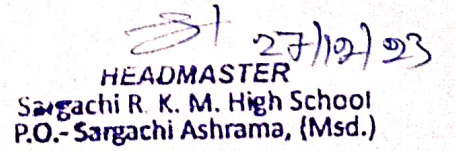 27/12/23
HEADMASTER
Sargachi R. K. M. High School
P.O.- Sargachi Ashrama, (Msd.)